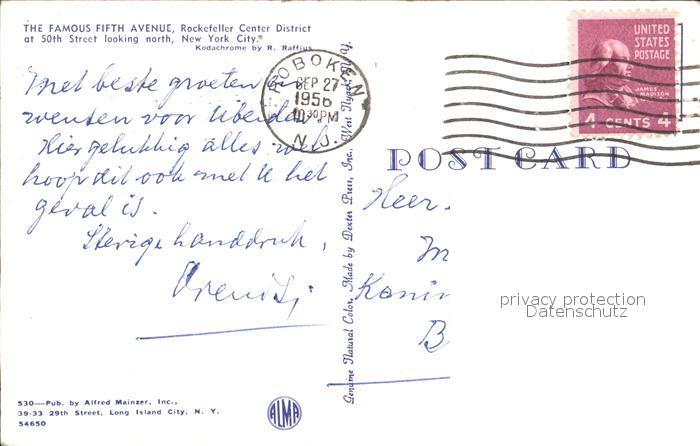 THE FAMOUS FIFTH AVENUE, Rockefeller Center District
at 50th Street looking north, New York City.
Kodachrome by R. Raffius
Met beste groeten en
wensen voor Ubeiden.
Hier gelukkig alles wel
hoop dit ook met U het
geval is.
Stevige handdruk,
530—Pub. by Alfred Mainzer, Inc.,
39-33 29th Street, Long Island City, N. Y.
54650
ALMA
Genuine Natural Color. Made by Dexter Press, Inc., West Nyack, N. Y.
HOBOKEN
SEP 27
1956
10 30 PM
N. J.
UNITED
STATES
POSTAGE
JAMES
MADISON
4 CENTS 4
POST CARD
Heer.
B
privacy protection
Datenschutz